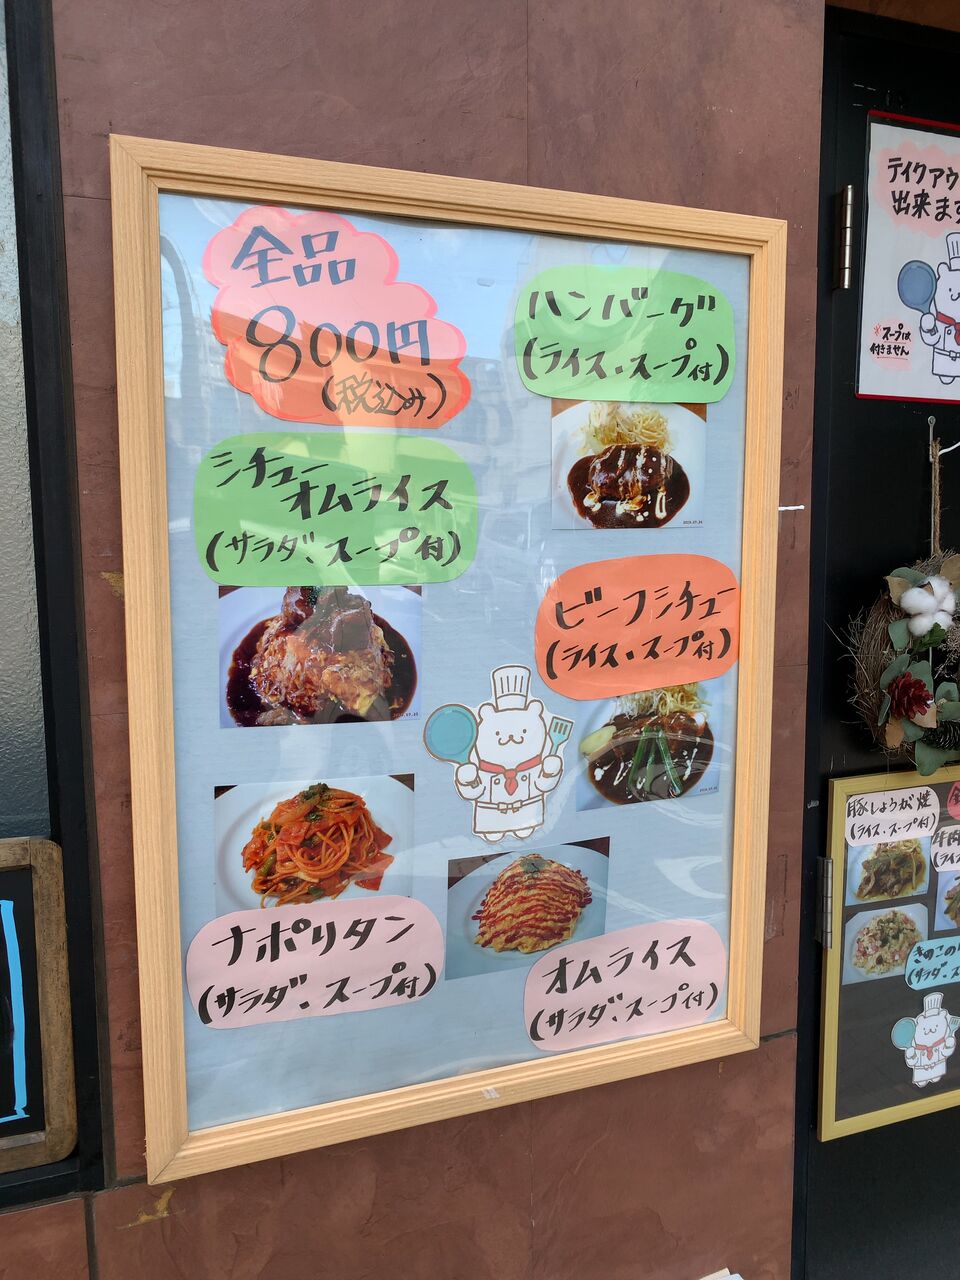 全品
800円
(税込み)
ハンバーグ
(ライス・スープ付)
シチュー
オムライス
(サラダ、スープ付)
ビーフシチュー
(ライス・スープ付)
ナポリタン
(サラダ、スープ付)
オムライス
(サラダ、スープ付)
テイクアウ
出来ます
※スープは
付きません
豚しょうが焼
(ライス・スープ付)
きのこの
(サラダ・ス